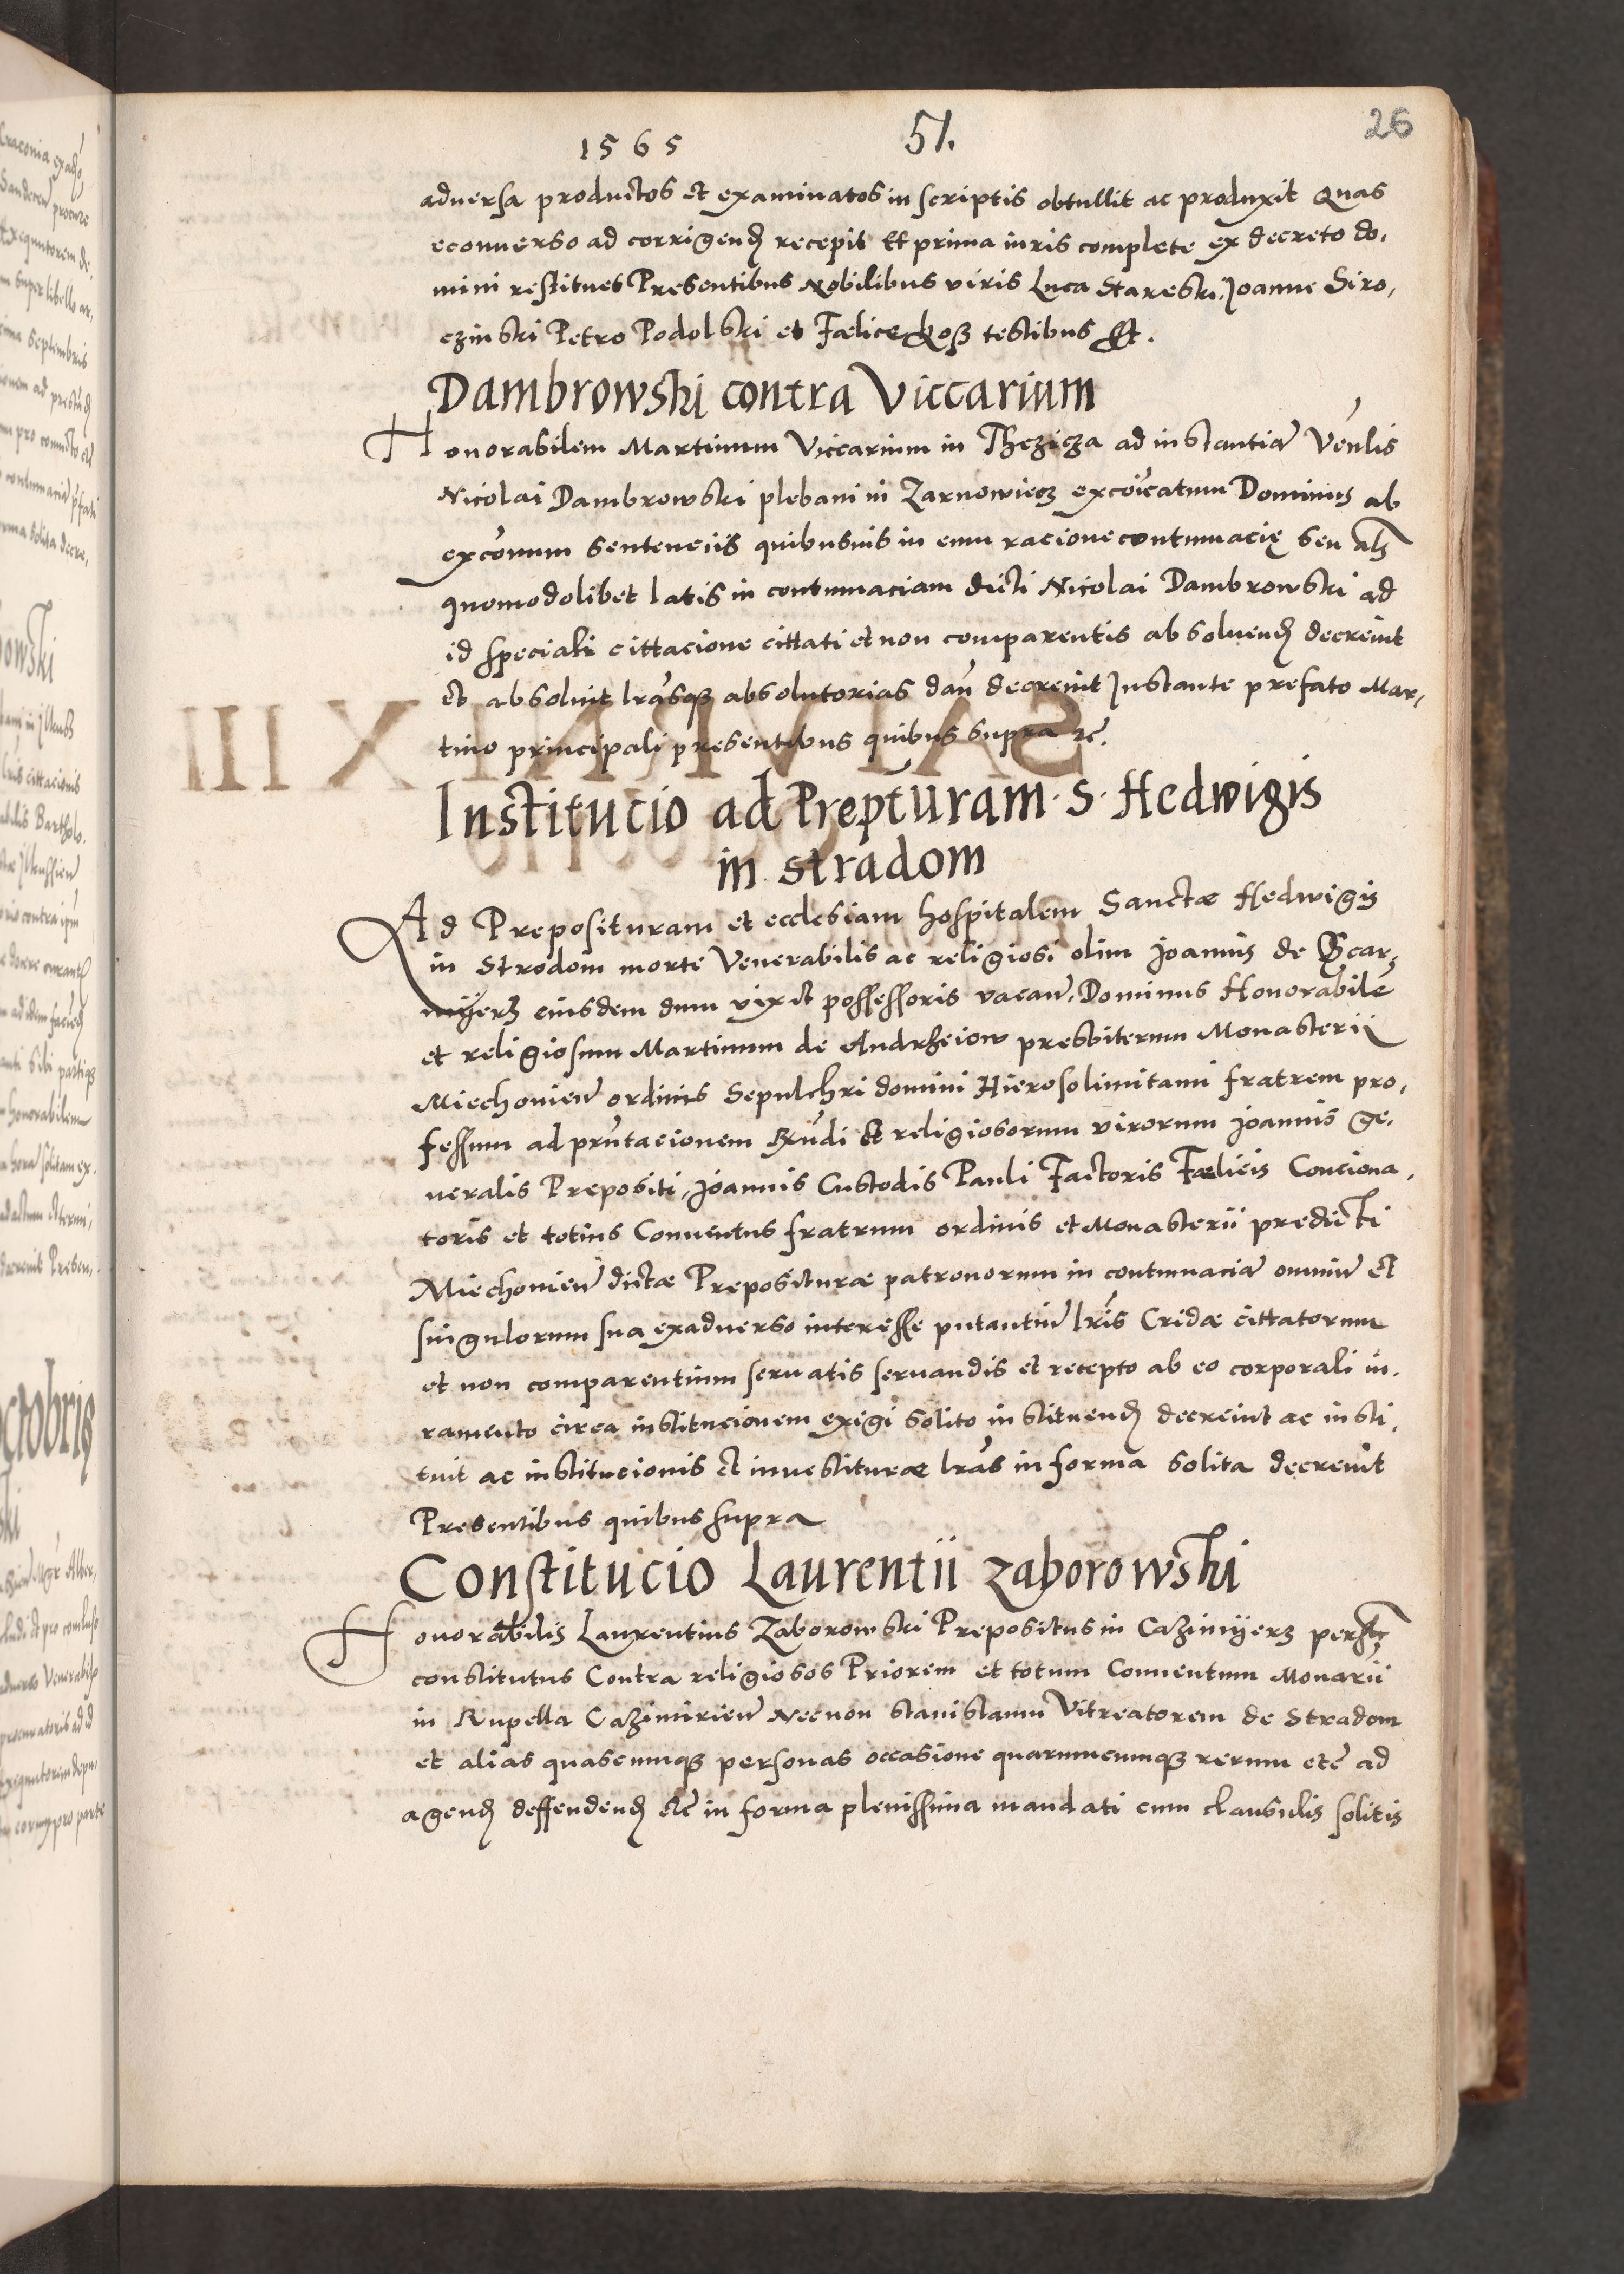 1565 51. 26
adversa productos et examinatos in scriptis obtullit ac produxit Quas
econverso ad corrigend recepit Et prima iuris complete ex decreto do,
mini restituet Presentibus Nobilibus viris Luca Stareski, Joanne Siro,
czinski Petro Podolski et Fælice Koß testibus Et.
Dambrowski contra Viccarium
Honorabilem Martinum Viccarium in Thczicza ad instantia Venlis
Nicolai Dambrowski plebani in Zarnowiecz excoicatum Dominus ab
exconum sentenciis quibusvis in eum racione contumacię seu als
quomodolibet latis in contumaciam dicti Nicolai Dambrowski ad
id speciali cittacione cittati et non comparentis absolvend decrevit
et absolvit lrasq absolutorias dan decrevit Instante prefato Mar,
tino principali presentibus quibus supra etc.
Institucio ad Prepturam S. Hedwigis
in stradom
Ad Preposituram et ecclesiam hospitalem Sanctæ Hedwigis
in Strodom morte Venerabilis ac religiosi olim Joannis de Scar,
myerz eiusdem dum vixit possessoris vacan, Dominus Honorabile
et religiosum Martinum de Andrzeiow presbiterum Monasterii
Miechovien ordinis Sepulchri domini Hierosolimitani fratrem pro,
fessum ad prntacionem Rndi et religiosorum virorum Joannis ge,
neralis Prepositi, Joannis Custodis Pauli Factoris Fælicis Conciona,
toris et totius Conventus fratrum ordinis et Monasterii predicti
Miechovien dictæ Præposituræ patronorum in contumacia omniu et
singulorum sua exadverso interesse putantiu lris Cridæ cittatorum
et non comparentium servatis servandis et recepto ab eo corporali iu,
ramento circa institucionem exigi solito instituend decrevit ac insti,
tuit ac institucionis et investituræ lras in forma solita decrevit
Presentibus quibus supra
Constitucio Laurentii Zaborowski
Honorabilis Laurentius Zaborowski Prepositus in Cazimyerz
constitutus Contra religiosos Priorem et totum Conventum Monarii
in Rupella Cazimirien Necnon Stanislaum Vitreatorem de Stradom
et alias quascumq personas occasione quarumcumq rerum etc ad
agend deffendend etc in forma plenissima mandati cum clausulis solitis